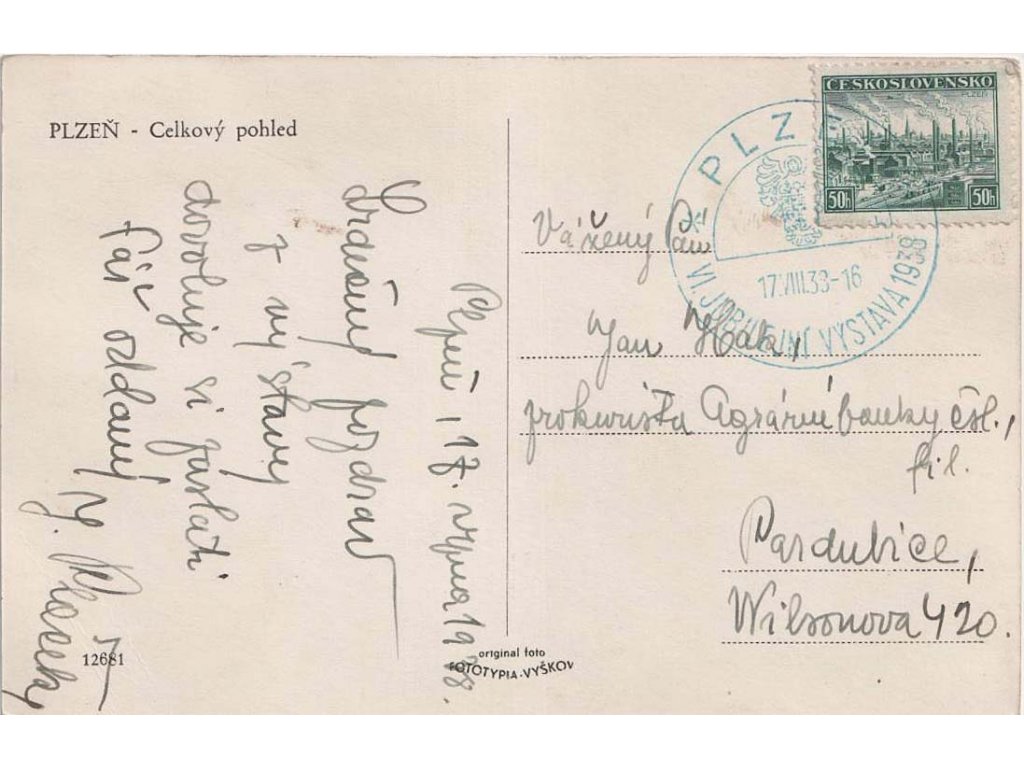 PLZEŇ - Celkový pohled
Plzeň, 17. srpna 1938.
Srdečný pozdrav
z výstavy
dovoluje si zaslati
Váš oddaný
J.
12681
original foto
FOTOTYPIA-VYŠKOV
ČESKOSLOVENSKO
PLZEŇ
50h 50h
PLZ
17.VIII.38-16
VI. JUBILEJNÍ VÝSTAVA 1938
Vážený Pán
Jan Hak,
prokurista Agrární banky čsl.,
fil.
Pardubice,
Wilsonova 420.